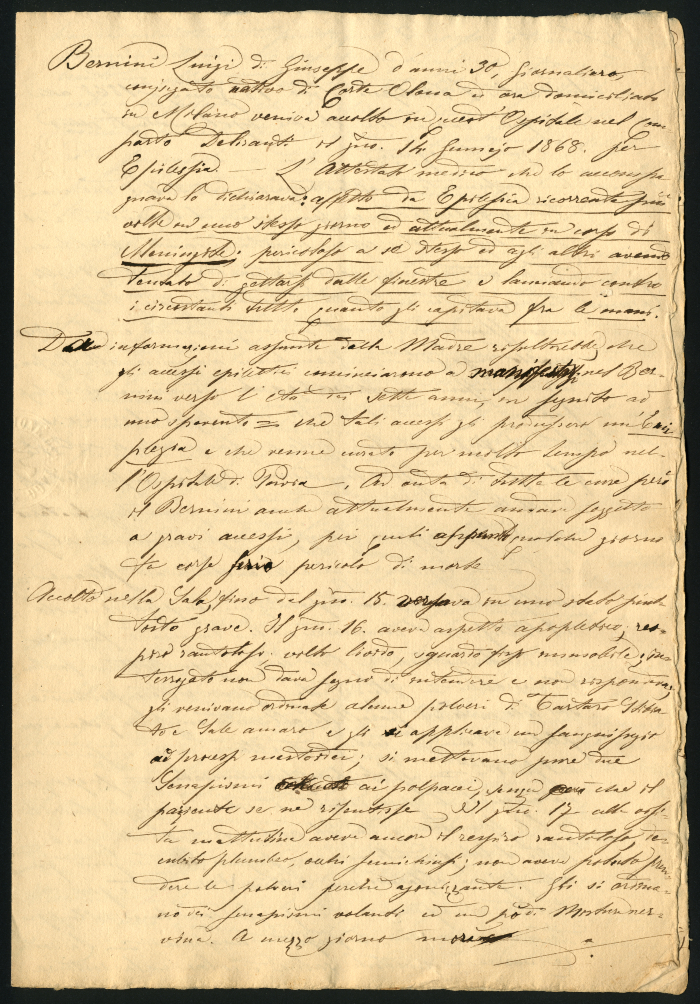 Bernini Luigi di Giuseppe d'anni 30, Giornaliero,
conjugato nativo di Corte Olona ed ora domiciliato
in Milano veniva accolto in quest'Ospitale nel com-
parto Deliranti il gno. 14 Gennajo 1868. per
Epilessia. — L'Attestato medico che lo accompa-
gnava lo dichiarava: affetto da Epilessia ricorrente più
volte in uno stesso giorno ed attualmente in corso di
Meningite; pericoloso a se stesso ed agli altri avendo
tentato di gettarsi dalle finestre e lanciando contro
i circostanti tutto quanto gli capitava fra le mani.
Da informazioni assunte dalla Madre risulterebbe che
gli accessi epilettici cominciarono a manifestarsi nel Ber-
nini verso l'età dei sette anni, in seguito ad
uno spavento = che tali accessi gli produssero un'Emi-
plegia e che venne curato per molto tempo nel-
l'Ospitale di Pavia. Ad onta di tutte le cure però
il Bernini anche attualmente andava soggetto
a gravi accessi, pei quali appunto qualche giorno
fa corse serio pericolo di morte.
Accolto nella Sala, fino dal gno. 15. versava in uno stato piut-
tosto grave. Il gno. 16. aveva aspetto apopletico, res-
piro rantoloso, volto livido, sguardo fisso immobile; in-
terrogato non dava segno di intendere e non rispondeva;
gli venivano ordinate alcune polveri di Tartaro Stibia-
to e Sale amaro e gli si applicava un sanguisugio
ai processi mastoidei; si mettevano pure due
Senapismi ai polpacci, senza però che il
paziente se ne risentisse. Il gno. 17 alla visi-
ta mattutina aveva ancora il respiro rantoloso de-
cubito plumbeo, occhi semichiusi; non aveva potuto pren-
dere le polveri perchè agonizzante. Gli si ordina-
no dei senapismi volanti ed un pò di Mostura ner-
vina. A mezzo giorno